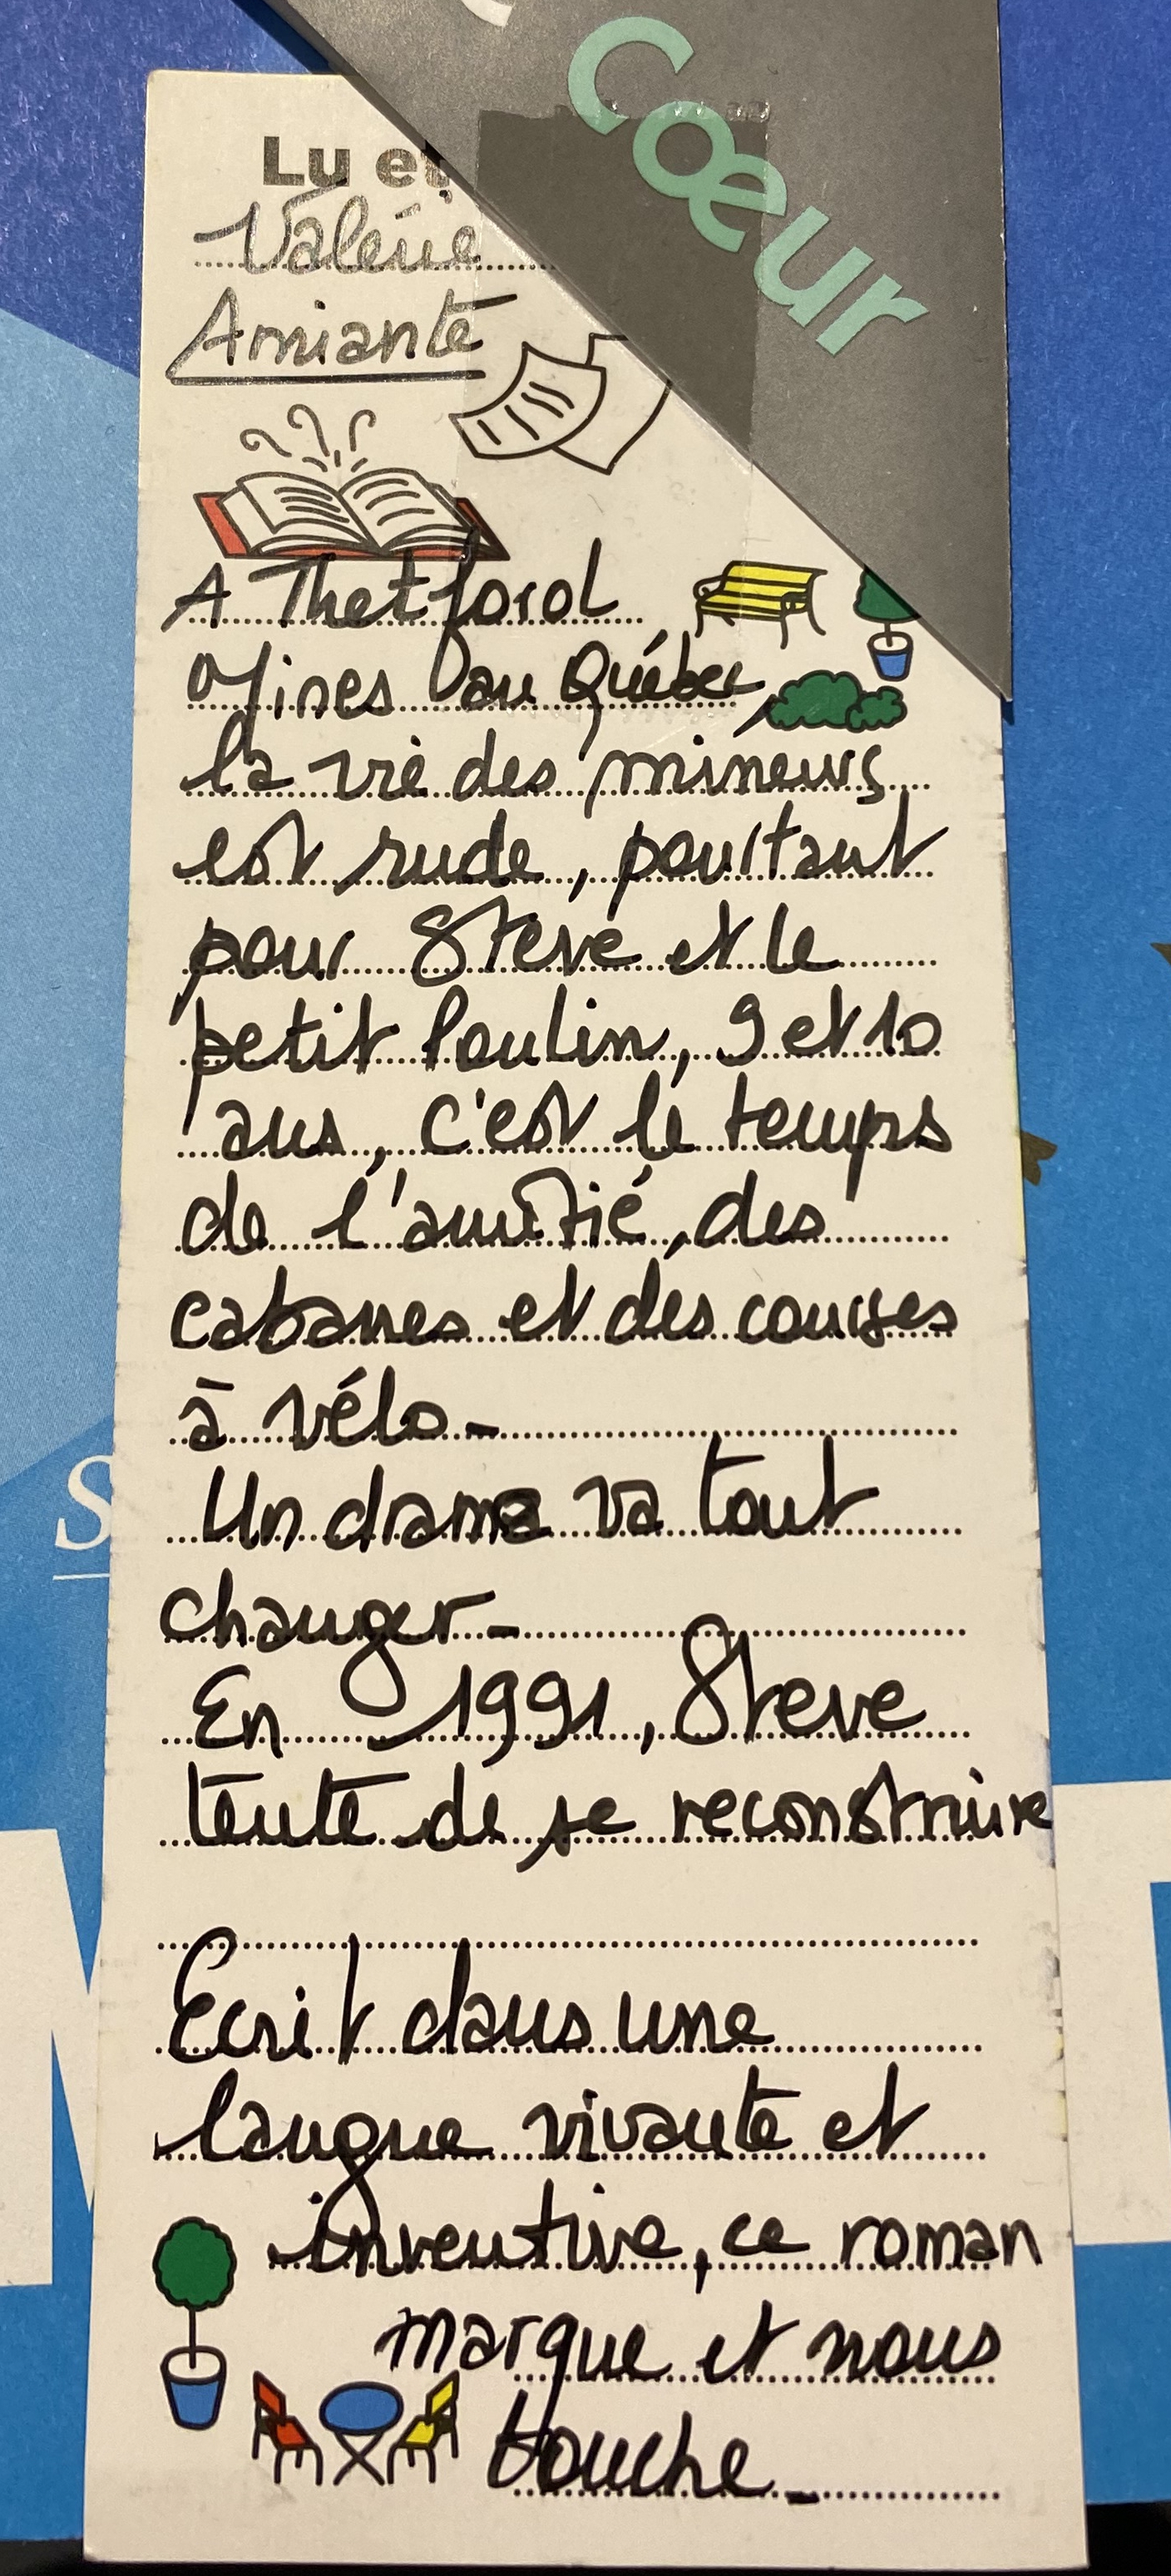 cœur
Lu et
Valérie
Amiante
A Thetford
Mines au Québec,
la vie des mineurs
est rude, pourtant
pour Steve et le
petit Poulin, 9 et 10
ans, c'est le temps
de l'amitié, des
cabanes et des courses
à vélo-
Un drame va tout
changer-
En 1991, Steve
tente de se reconstruire
Ecrit dans une
langue vivante et
inventive, ce roman
marque et nous
touche-